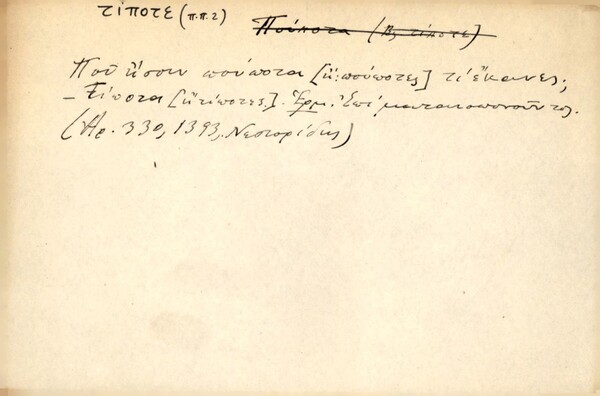 τίποτε (π.π.2) Πούποτα (βλ. τίποτε)
Ποῦ ἤσουν πούποτα [ἤ: πούποτες] τί ἔκανες;
– Τίποτα [ἤ τίποτες]. Ἑρμ. Ἐπὶ ματαιοπονοῦντος.
(Ἀρ. 330, 1393, Νεστορίδης)